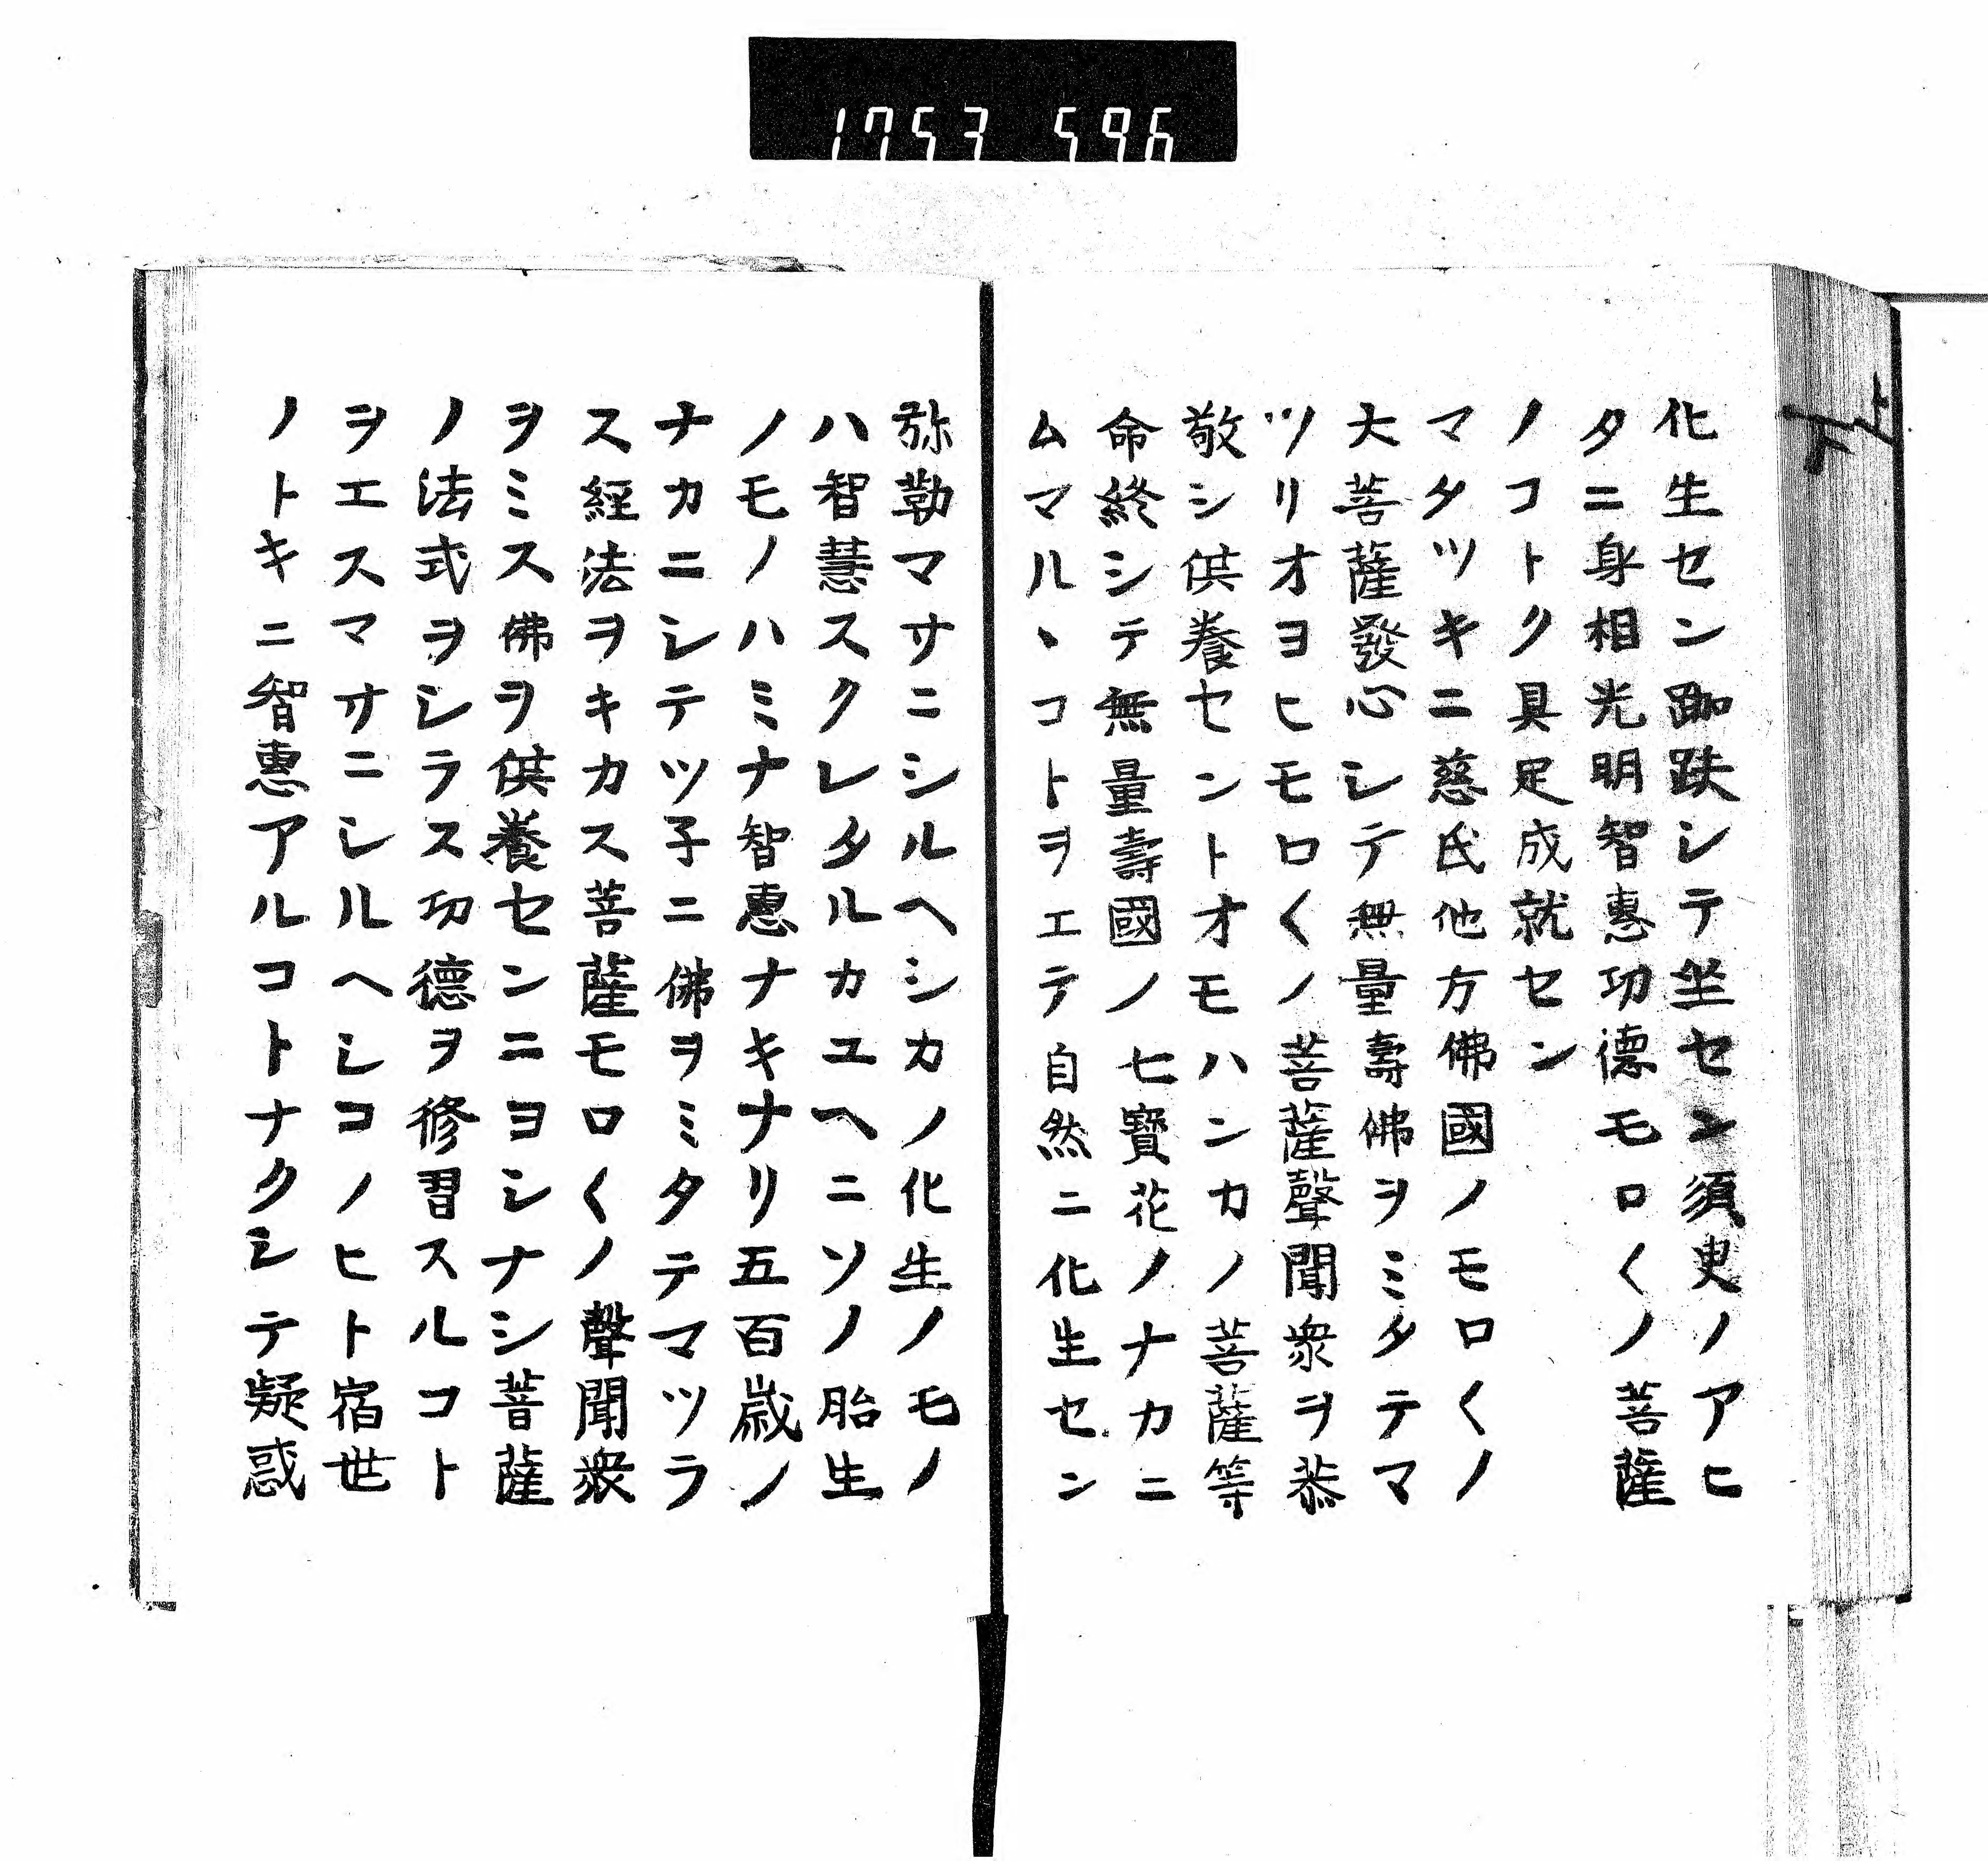 1753 596
化生セン跏趺シテ坐セン須臾ノアヒ
タニ身相光明智惠功德モロ〱ノ菩薩
ノコトク具足成就セン
マタツキニ慈氏他方佛國ノモロ〱ノ
大菩薩發心シテ無量壽佛ヲミタテマ
ツリオヨヒモロ〱ノ菩薩聲聞衆ヲ恭
敬シ供養セントオモハンカノ菩薩等
命終シテ無量壽國ノ七寶花ノナカニ
ムマルヽコトヲエテ自然ニ化生セン
弥勒マサニシルヘシカノ化生ノモノ
ハ智慧スクレタルカユヘニソノ胎生
ノモノハミナ智惠ナキナリ五百歳ノ
ナカニシテツ子ニ佛ヲミタテマツラ
ス経法ヲキカス菩薩モロ〱ノ聲聞衆
ヲミス佛ヲ供養センニヨシナシ菩薩
ノ法式ヲシラス功德ヲ修習スルコト
ヲエスマサニシルヘシコノヒト宿世
ノトキニ智惠アルコトナクシテ疑惑